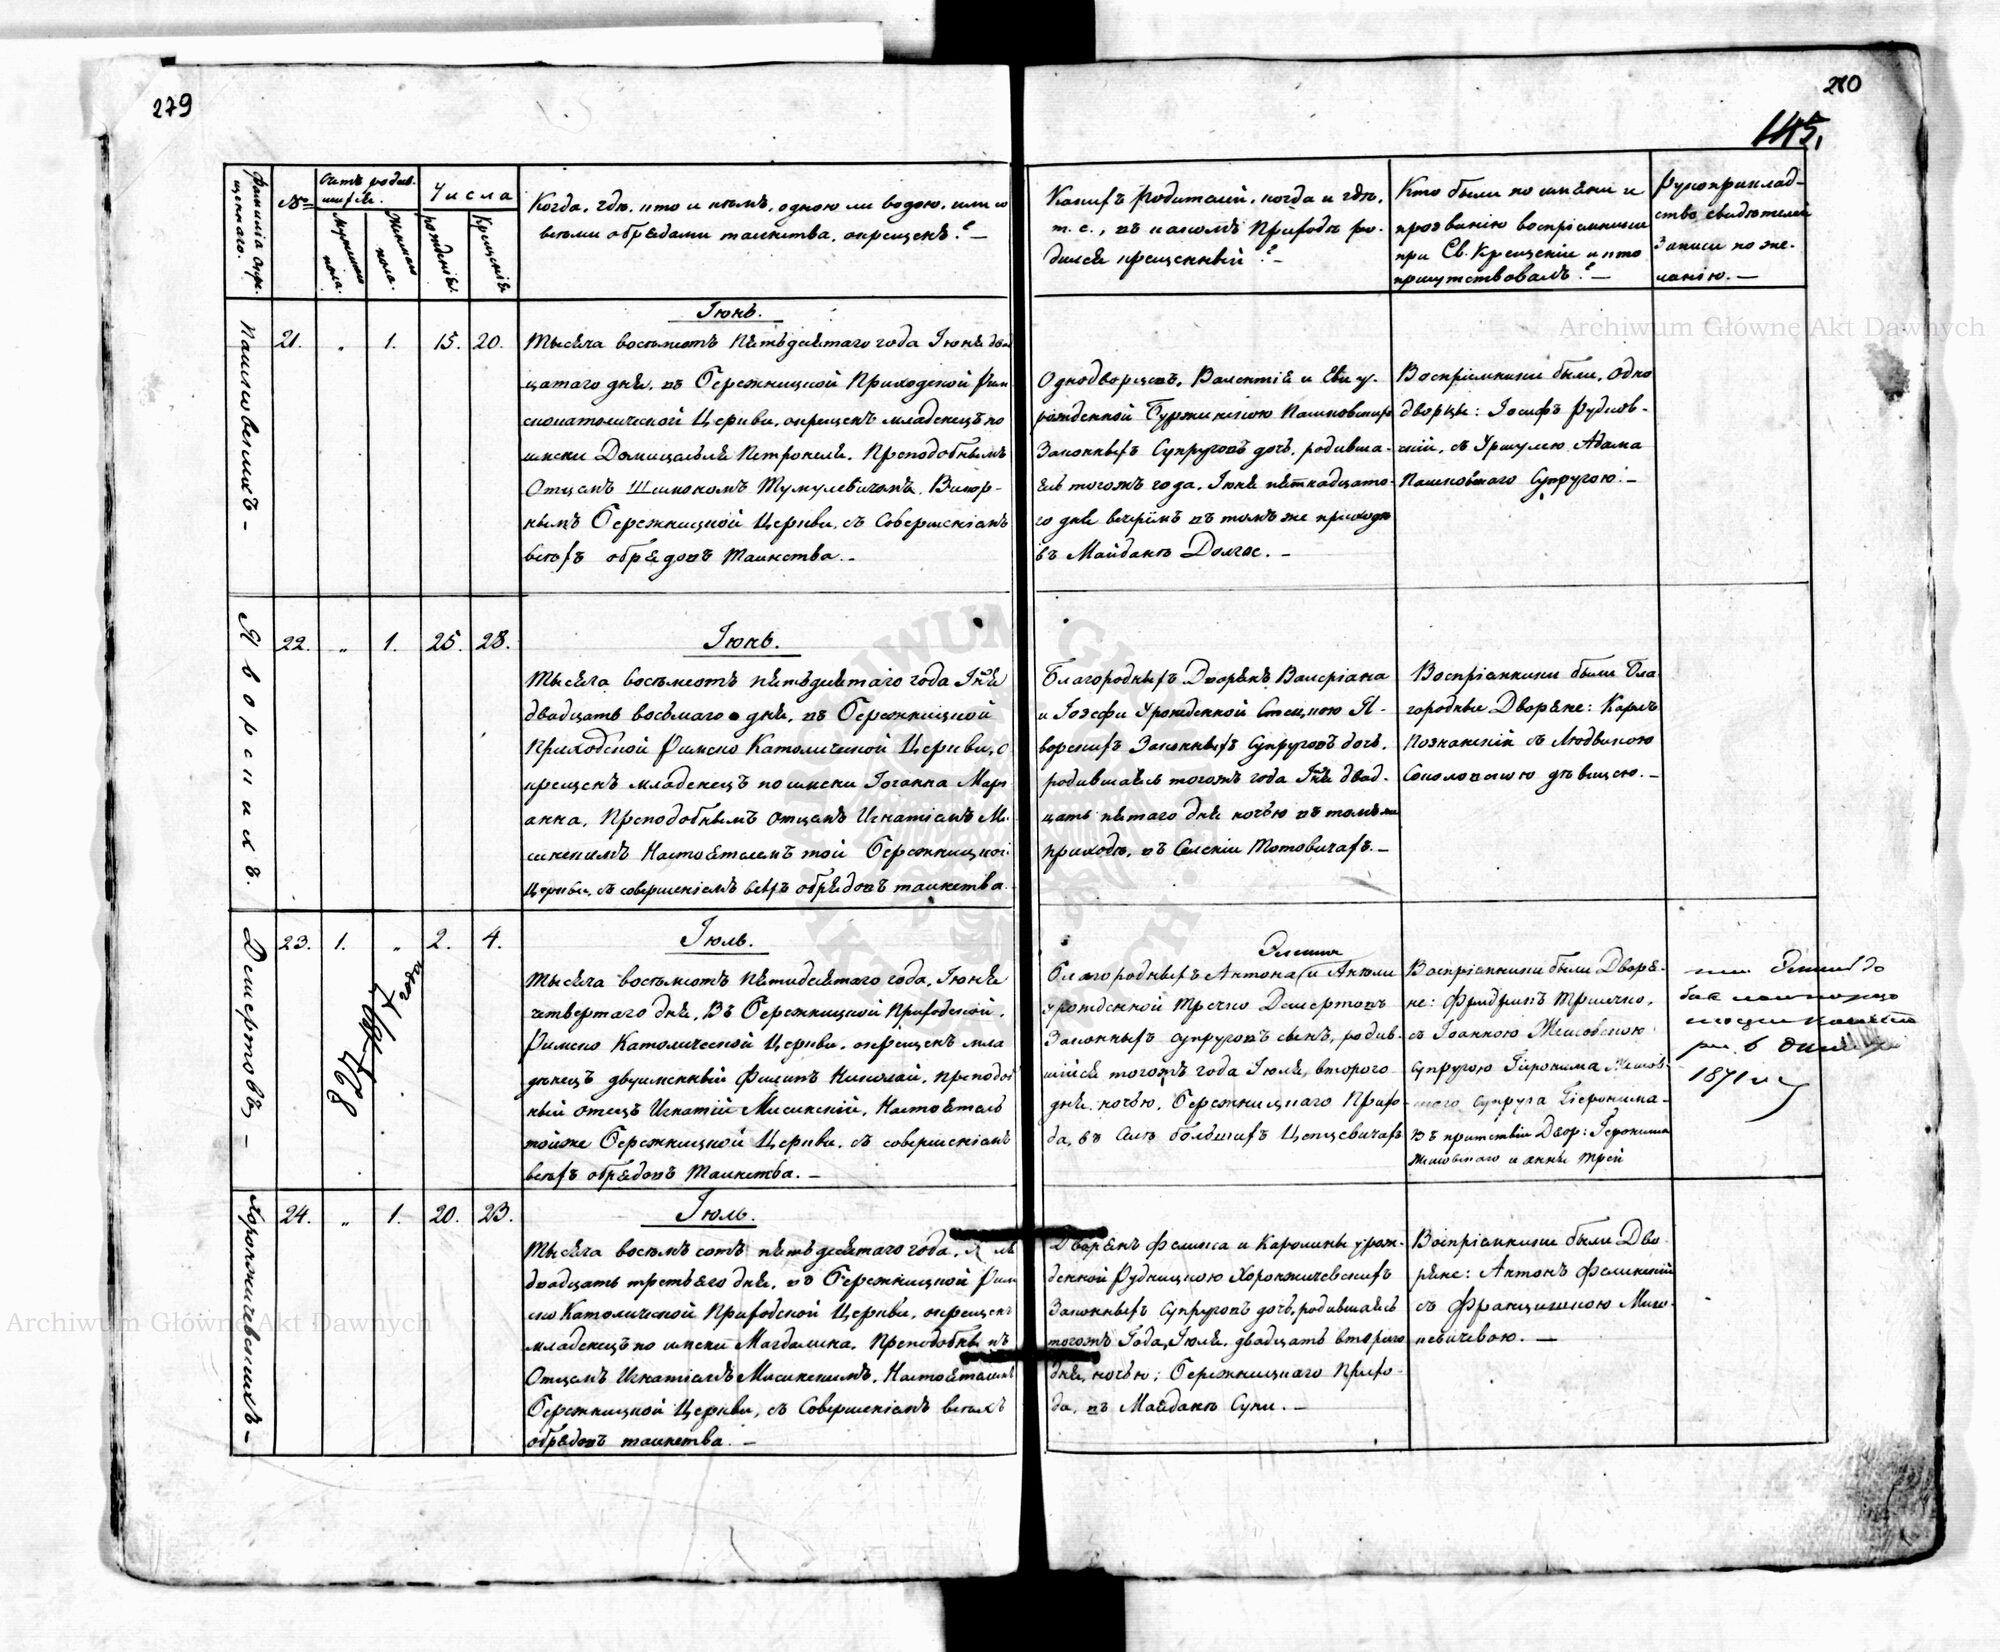 279
210
145.
Фамилія окре-
щеннаго.
№
Счетъ родив-
шихся.
Мужеска
пола.
Женска
пола.
Числа
рожденія.
Крещенія
Когда, гдѣ, кто и кѣмъ, одною ли водою, или со
всѣми обрядами таинства, окрещенъ? —
Какихъ Родителей, когда и гдѣ,
т. е., въ какомъ Приходѣ ро-
дился крещенный? —
Кто были по имени и
прозванію воспріемники
при Св. Крещеніи и кто
присутствовалъ? —
Рукоприклад-
ство свидѣтелей
Записи по же-
ланію. —
Пашковскихъ —
21. „ 1. 15. 20.
Іюнь.
Тысяча восемьсотъ Пятьдесятаго года Іюня два
цатаго дня, въ Бережницкой Приходской Рим
скокатолической Церкви, окрещенъ младенецъ по
имени Домицеля Петронеля, Преподобнымъ
Отцемъ Шимономъ Тумулевичемъ, Викар-
нымъ Бережницкой Церкви, съ Совершеніемъ
всѣхъ обрядовъ Таинства. —
Однодворцевъ, Валентія и Евы у-
рожденной Буржинскою Пашковскихъ
Законныхъ Супруговъ дочь, родивша-
яся тогожъ года, Іюня пятнадцато-
го дня вечеромъ въ томъ же приходѣ
въ Майданѣ Долгое. —
Воспріемники были, одно
дворцы: Іосифъ Рудков-
скій, съ Уршулею Адама
Пашковскаго Супругою. —
Яворскихъ.
22. „ 1. 25. 28.
Іюнь.
Тысяча восемьсотъ пятьдесятаго года Іюня
двадцать восьмаго дня, въ Бережницкой
Приходской Римско Католической Церкви, о
крещенъ младенецъ по имени Іоганна Мари
анна, Преподобнымъ отцемъ Игнатіемъ Ми
сикскимъ Настоятелемъ той Бережницкой
Церкви, съ совершеніемъ всѣхъ обрядовъ таинства.
Благородныхъ Дворянъ Валеріана
и Іозефы Урожденной Стецкою Я-
ворскихъ Законныхъ Супруговъ дочь,
родившаяся тогожъ года Іюня двад-
цать пятаго дня ночью въ томъ же
приходѣ, въ Селеніи Тотовичахъ. —
Воспріемники были Бла
городные Дворяне: Кароль
Познанскій съ Людвикою
Соколовскою дѣвицею. —
Десертовъ —
23. 1. „ 2. 4.
827 1897
года
Іюль.
Тысяча восемьсотъ Пятидесятаго года, Іюня
четвертаго дня, Въ Бережницкой Приходской,
Римско Католической Церкви, окрещенъ мла
денецъ двуименный Филипъ Николай, преподоб
ный отецъ Игнатій Мисикскій, Настоятель
тойже Бережницкой Церкви, съ совершеніемъ
всѣхъ обрядовъ Таинства. —
Благородныхъ Антона и Анели
урожденной Тречко Десертовъ
Законныхъ супруговъ сынъ, родив-
шійся тогожъ года Іюля, втораго
дня ночью, Бережницкаго Прихо-
да, въ Селѣ большихъ Цепцевичахъ
Воспріемники были Дворя-
не: Фридрихъ Тршечко,
съ Іоанною Жешовскою
супругою Гіеронима Жешов-
скаго, супруга Гіеронима
Въ присутствіи Двор: Геронима
Жешовскаго и Анны Трей
1871
Хоронжичевскихъ —
24. „ 1. 20. 23.
Іюль.
Тысяча восемь сотъ пятьдесятаго года, Іюля
двадцать третьего дня, въ Бережницкой Рим
ско Католической Приходской Церкви, окрещенъ
младенецъ по имени Магдалина, Преподобнымъ
Отцемъ Игнатіемъ Мисикскимъ, Настоятелемъ
Бережницкой Церкви, съ Совершеніемъ всѣхъ
обрядовъ таинства. —
Дворянъ Феликса и Каролины урож-
денной Рудницкою Хоронжичевскихъ
Законныхъ Супруговъ дочь, родившаясь
тогожъ Года, Іюля, двадцать втораго
дня, ночью; Бережницкаго Прихо-
да, въ Майданѣ Суки. —
Воспріемники были Дво-
ряне: Антонъ Фелинскій
съ Францишкою Мико-
невичевою. —
Archiwum Główne Akt Dawnych
Archiwum Główne Akt Dawnych